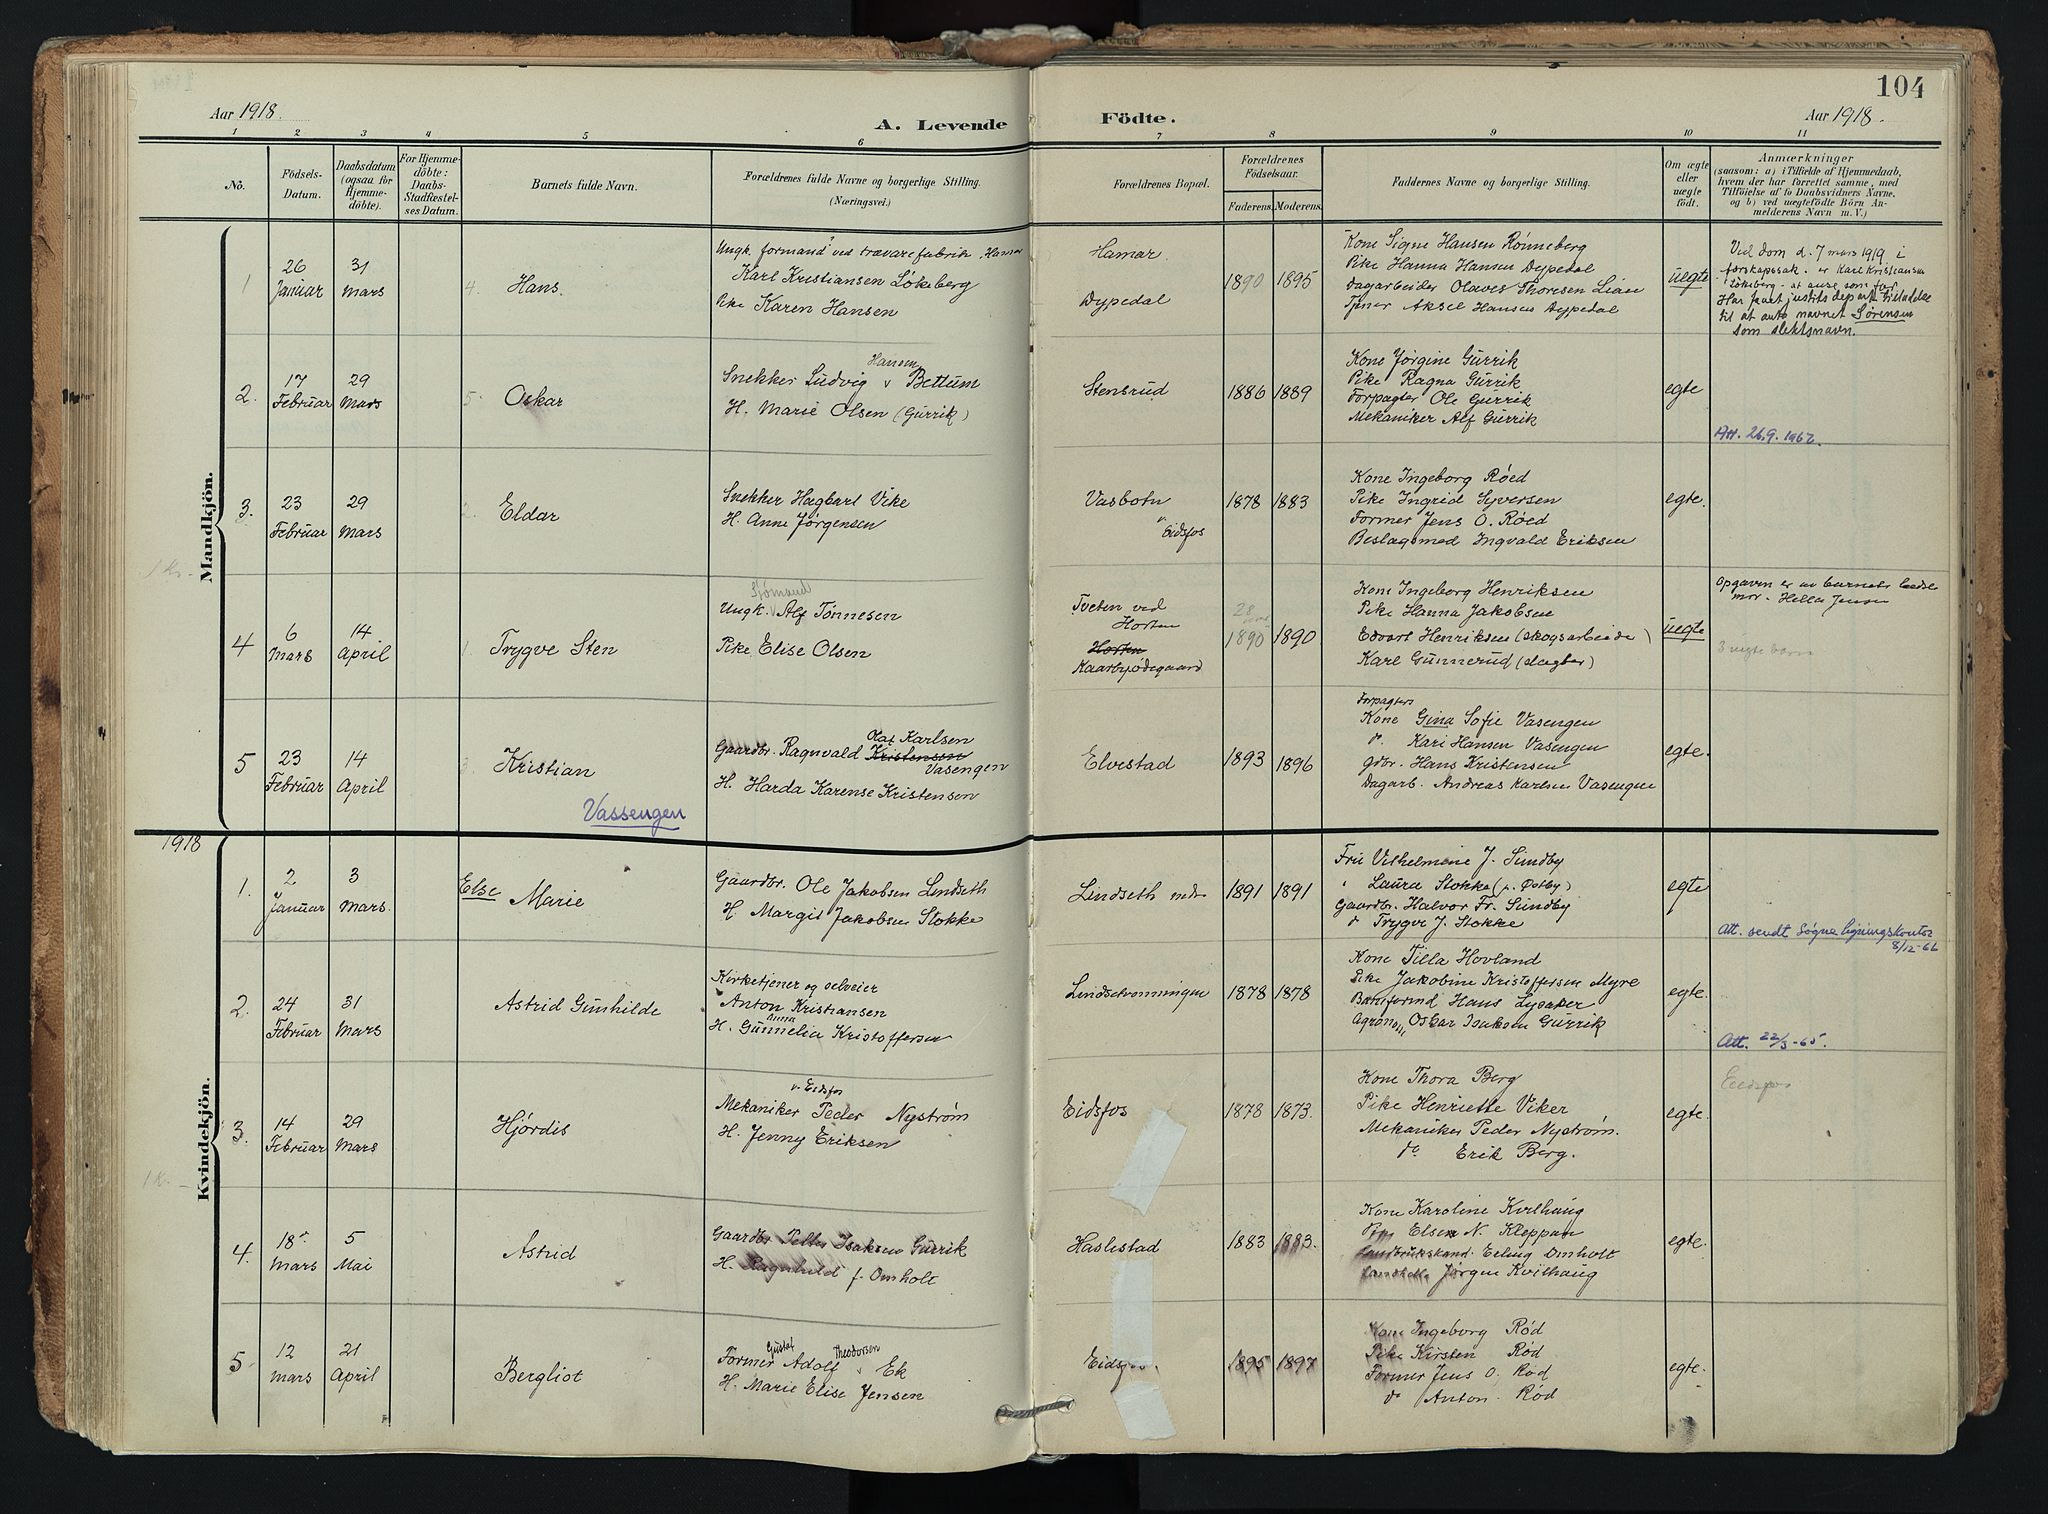 104
Aar 1918.
A. Levende Födte.
Aar 1918.
1 2 3 4 5 6 7 8 9 10 11
No.
Födsels-
Datum.
Daabsdatum
(ogsaa for
Hjemme-
döbte).
For Hjemme-
döbte:
Daabs-
Stadfæstel-
ses Datum.
Barnets fulde Navn.
Forældrenes fulde Navne og borgerlige Stilling.
(Næringsvei.)
Forældrenes Bopæl.
Forældrenes
Födselsaar.
Faderens. Moderens.
Faddernes Navne og borgerlige Stilling.
Om ægte
eller
uægte
födt.
Anmærkninger
(saasom: a) i Tilfælde af Hjemmedaab,
hvem der har forrettet samme, med
Tilföielse af to Daabsvidners Navne.
og b) ved uægtefödte Börn An-
melderens Navn m. V.)
Mandkjön.
1
26
Januar
31
Mars
4.
Hans.
Ungk. formand ved trævarefabrik, Hamar
Karl Kristiansen Løkeberg
Pike Karen Hansen
Hamar.
Dypedal
1890 1895
Kone Signe Hansen Rønneberg
Pike Hanna Hansen Dypedal
Dagarbeider Olaves Thoresen Lian
Tjener Aksel Hansen Dypedal
uegte
Ved dom d. 7 mars 1919 i
farskapssak. er Karl Kristiansen
Løkeberg at anse som far.
Har faat justits depart. tilladelse
til at anta navnet Sørensen
som slektsnavn.
2.
17
Februar
29
Mars
5.
Oskar
Hansen
Snekker Ludvig v Bettum
H. Marie Olsen (Gurrik)
Stensrud
1886 1889
Kone Jørgine Gurrik
Pike Ragna Gurrik
Forpagter Ole Gurrik
Mekaniker Alf Gurrik
egte
Att. 26.9.1962.
3.
23
Februar
29
Mars
2.
Eldar
Snekker Hagbart Vike
H. Anne Jørgensen
Vasbotn
v.
Eidsfos
1878 1883
Kone Ingeborg Røed
Pike Ingrid Syversen
Former Jens O. Røed
Beslagsmed Ingvald Eriksen
egte.
1 Kr.
4
6
Mars
14
April
1.
Trygve Sten
Sjømand
Ungk. v Alf Tønnesen
Pike Elise Olsen
Tveten ved
Horten
Horten
Kaarbyødegaard
28
1890 1890
Kone Ingeborg Henriksen
Pike Hanna Jakobsen
Edvart Henriksen (skogsarbeider)
Karl Gunnerud (slagter)
uegte
Opgaven er av barnets
mor. Hilla Jensen
3 uegte barn
5
23
Februar
14
April
3.
Kristian
Vassengen
Olaf Karlsen
Gaardbr. Ragnvald Kristensen
Vasengen
H. Harda Karense Kristensen
Elvestad
1893 1896
Forpagters
Kone Gina Sofie Vasengen
d. Kari Hansen Vasengen
Gdbr. Hans Kristensen
Dagarb. Andreas Karlsen Vasengen
egte.
1918
Kvindekjön.
1.
2
Januar
3
Mars.
Else Marie
Gaardbr. Ole Jakobsen Lindseth
H. Margit Jakobsen Stokke
Lindseth nedr
1891 1891
Fru Vilhelmine J. Sundby
" Laura Stokke (p. Østby)
Gaardbr. Halvor Fr. Sundby
d Trygve J. Stokke
egte
Att. sendt Søgne ligningskontor
8/12-66
2.
24
Februar
31
Mars
Astrid Gunhilde
Kirketjener og selveier
Anton Kristiansen
Anna
H. Gunnelia Kristoffersen
Lindsetrønningen
1878 1878
Kone Tilla Hovland
Pike Jakobine Kristoffersen Myre
Banformd Hans Lysaker
Agronom, Oskar Isaksen Gurrik
egte.
Att. 22/3-65.
3.
14
Februar
29
Mars
Hjørdis
v. Eidsfos
Mekaniker Peder Nystrøm
H. Jenny Eriksen
Eidsfos
1878 1873.
Kone Thora Berg
Pike Henriette Viker
Mekaniker Peder Nystrøm.
do Erik Berg.
egte.
Eidsfos
1 K.
4.
18
Mars
5
Mai
Astrid
Gaardbr Petter Isaksen Gurrik
H. Ragnhild f. Omholt
Haslestad
1883 1883.
Kone Karoline Kvilhaug
Pike Elsen N. Kleppan
Landbrukskand. Erling Omholt
Jørgen Kvilhaug
egte.
5
12
Mars
21
April
Bergliot
Gustaf Theodorsen
Former Adolf v Ek
H. Marie Elise Jensen
Eidsfos.
1895 1897
Kone Ingeborg Rød
Pike Kirsten Rød
Former Jens O. Rød
do Anton Rød
egte.